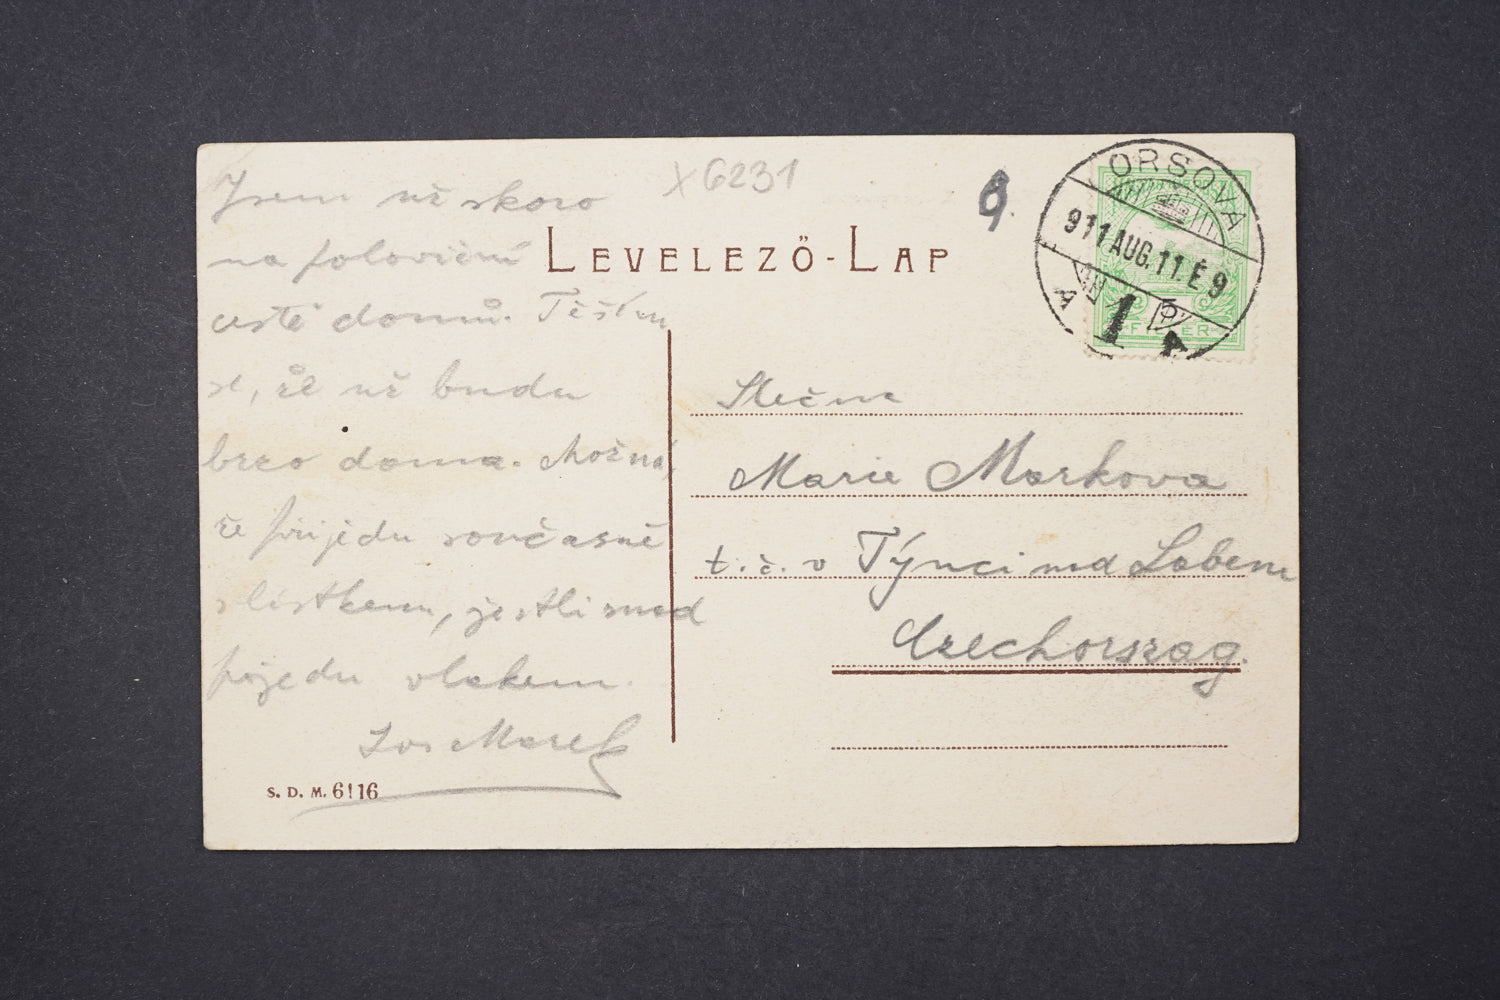 X6231
LEVELEZŐ-LAP
ORSOVA
911 AUG. 11. É 9
A
1
Jsem už skoro
na poloviční
cestě domů. Těším
se, že už budu
brzo doma. Možná,
že přijedu současně
s lístkem, jestli snad
pojedu vlakem.
Jos Marek
S. D. M. 6!16
Slečna
Marie Markova
t. č. v Týnci nad Labem
Czechorszag.